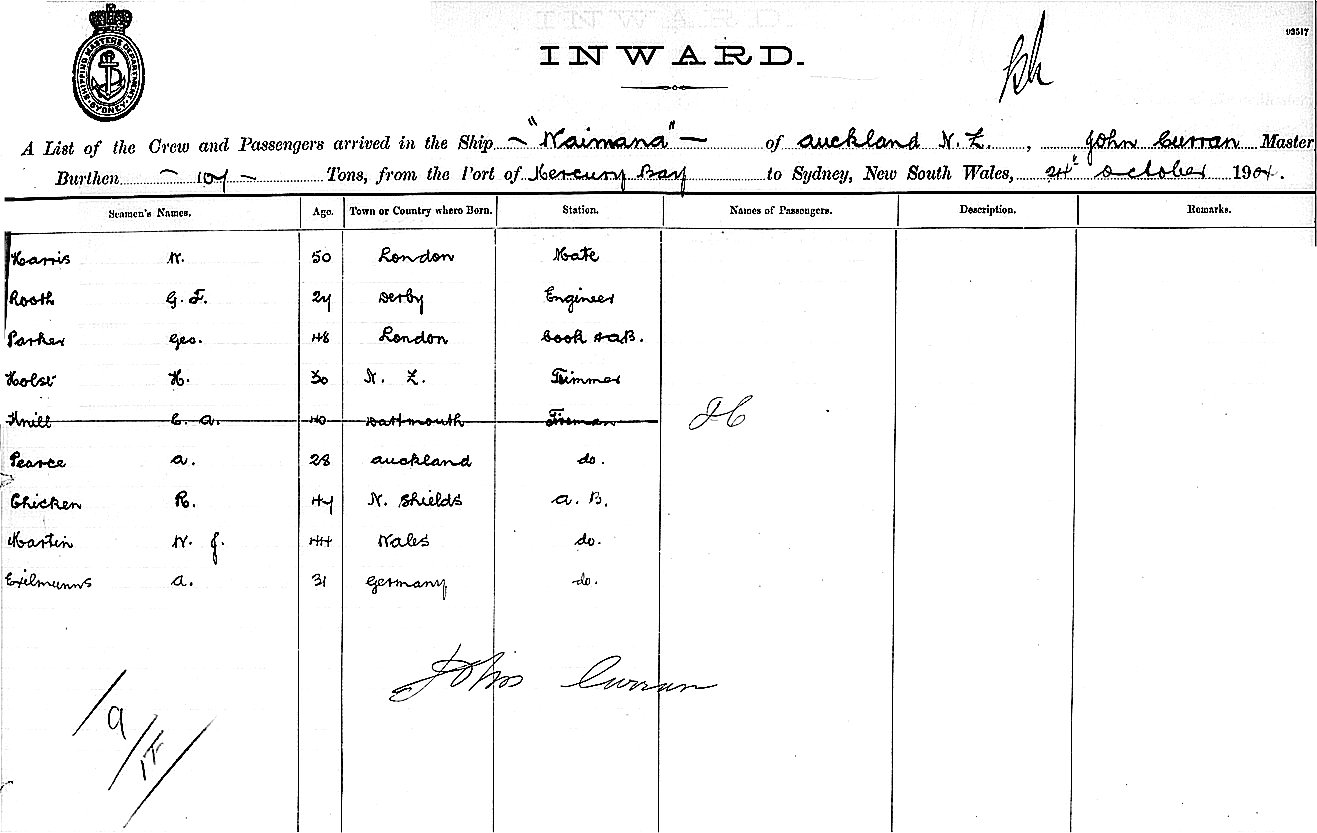 SHIPPING MASTERS DEPARTMENT SYDNEY
03517
INWARD.
A List of the Crew and Passengers arrived in the Ship "Waimana" of Auckland N. Z., John Curran Master
Burthen 107 Tons, from the Port of Mercury Bay to Sydney, New South Wales, 24t October 1904.
Seamen's Names. Age. Town or Country where Born. Station. Names of Passengers. Description. Remarks.
Harris W. 50 London Mate
Rooth G. F. 27 Derby Engineer
Parker Geo. 48 London Cook & AB.
Holst H. 30 N. Z. Trimmer
Knill C. A. 40 Dartmouth Fireman
Pearce A. 28 Auckland do.
Chicken R. 47 N. Shields A. B.
Martin W. J. 44 Wales do.
A. 31 Germany do.
John Curran